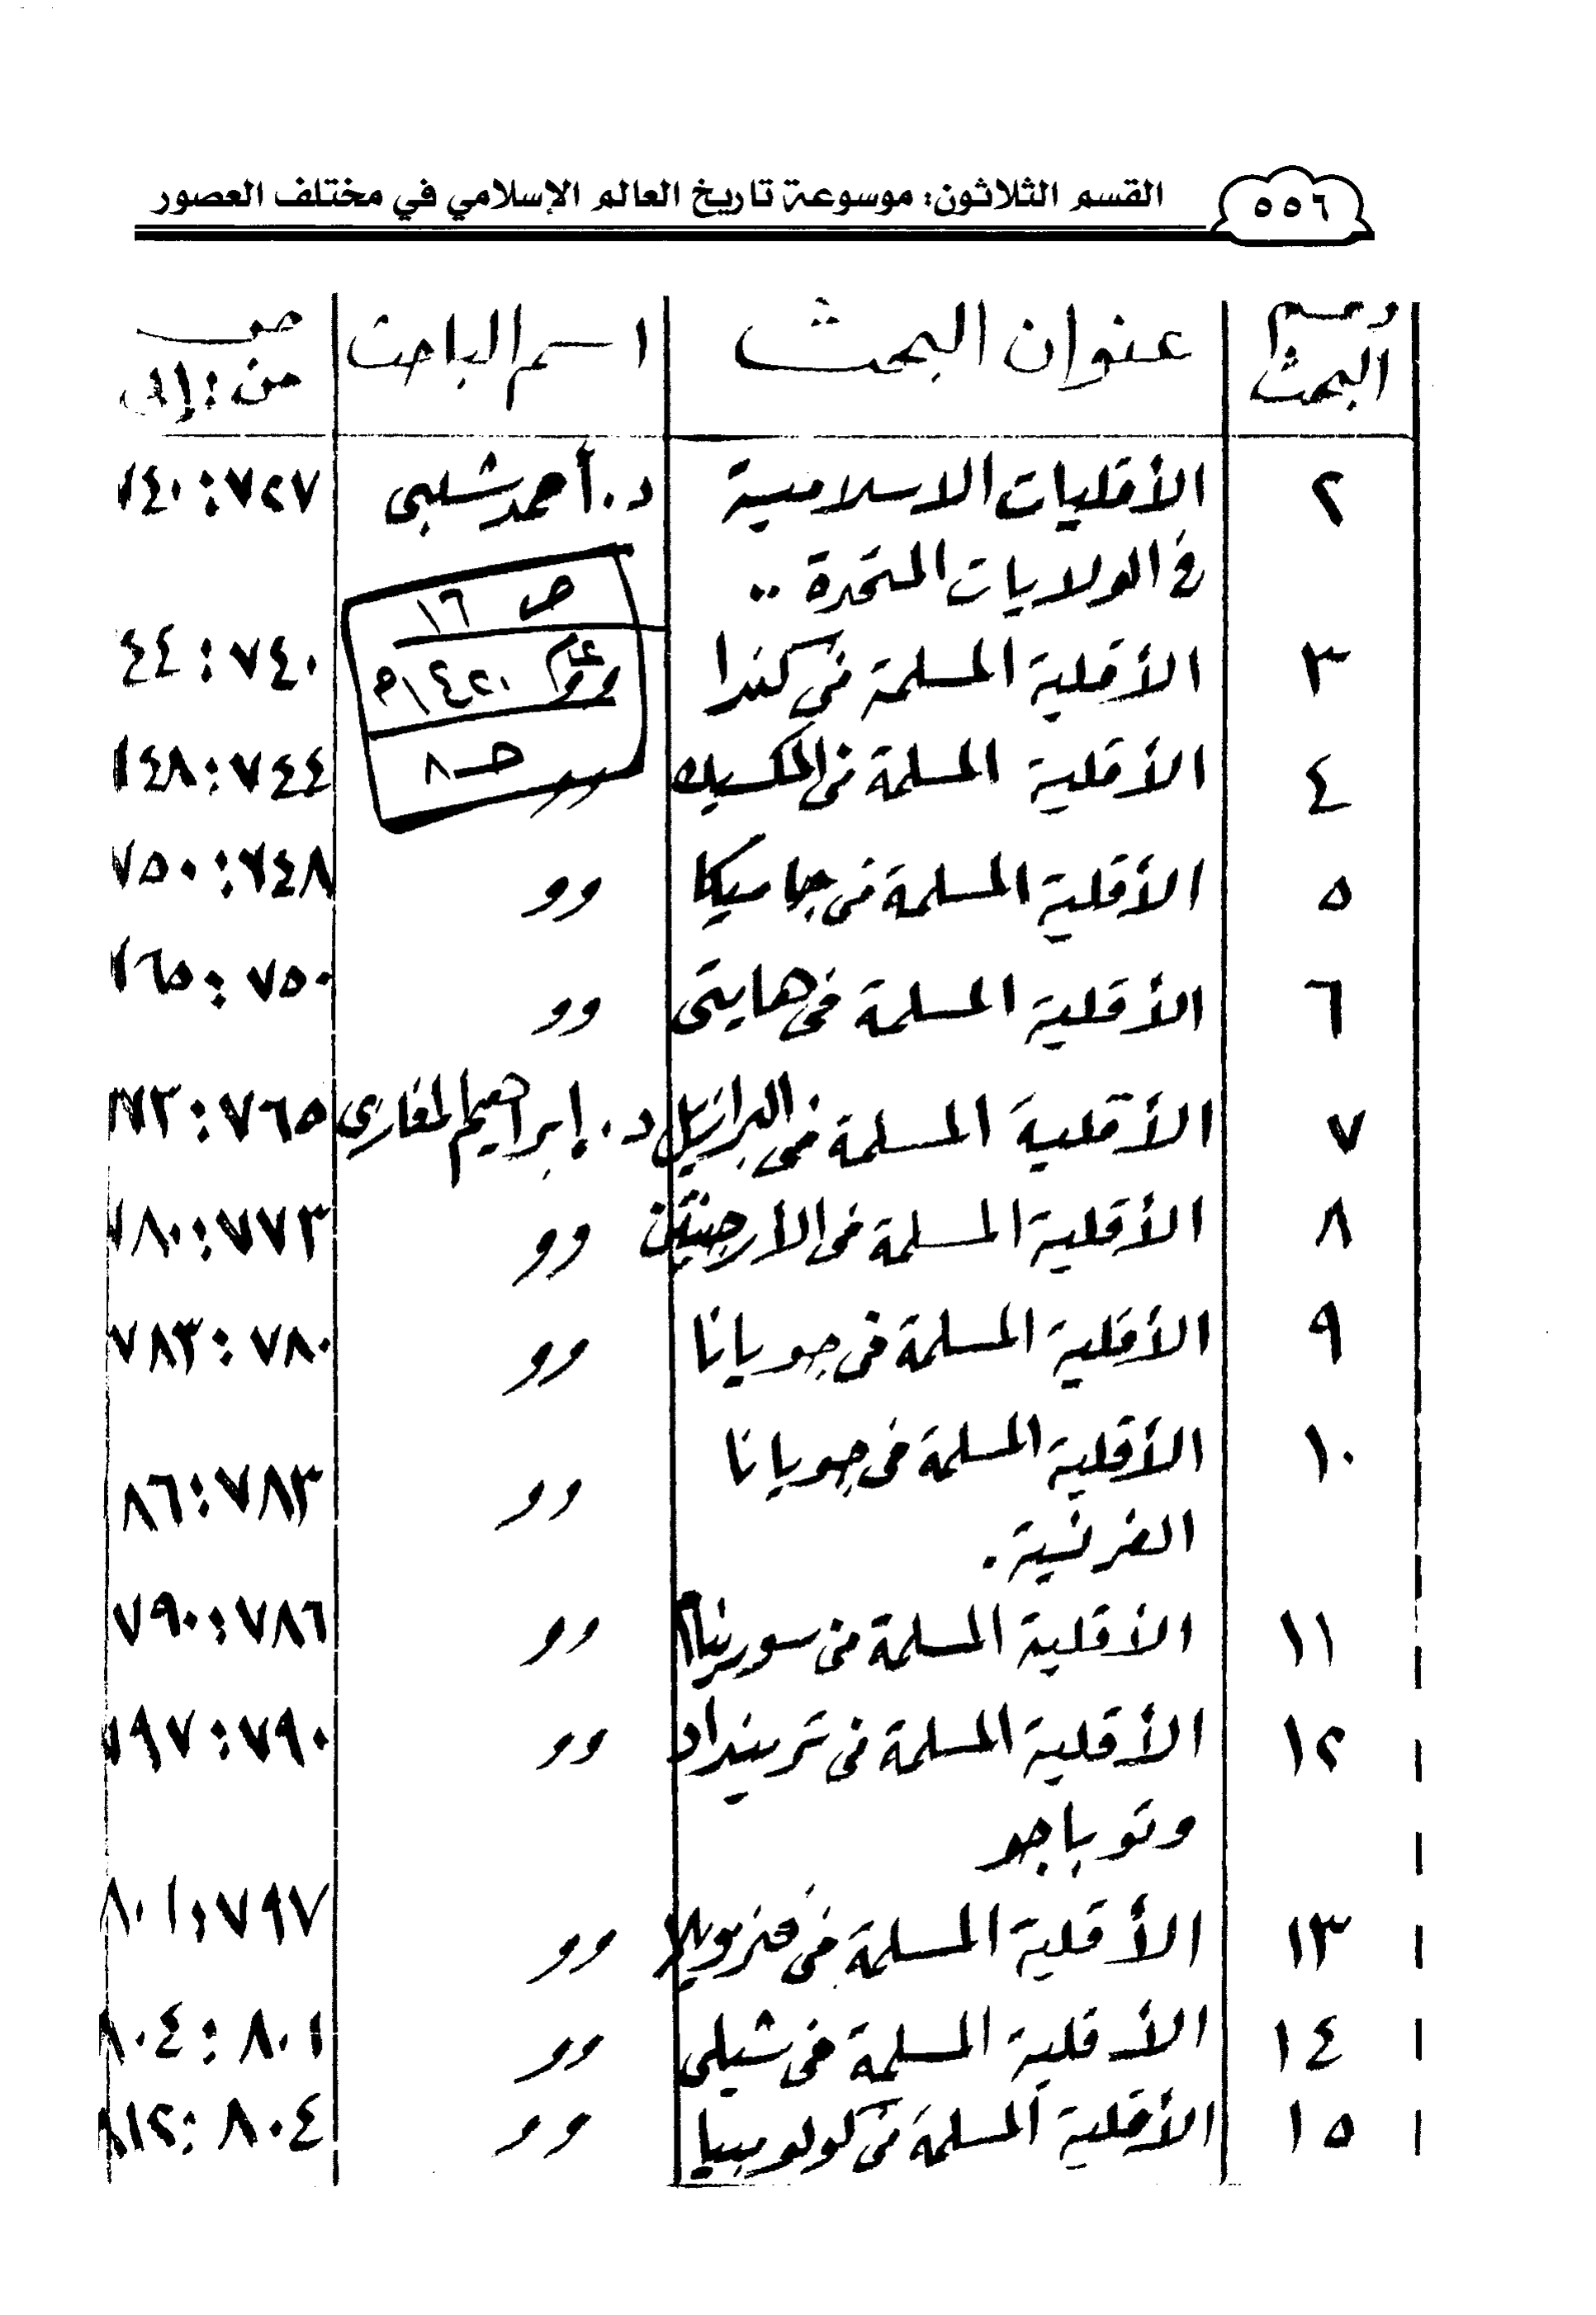 ٥٥٦ القسم الثلاثون: موسوعة تاريخ العالم الإسلامي في مختلف العصور
رقم البحث عنوان البحث اسم الباحث ص
من : إلى
٢ الأقليات الاسلامية د. أحمد شلبى ٧٢٧ : ٧٤٠
فى الولايات المتحدة ..
ص ١٦
عام ١٤٢١ م
حـ ٨
٣ الأقلية المسلمة فى كندا وو ٧٤٠ : ٤٤
٤ الأقلية المسلمة فى المكسيك وو ٧٤٤ : ٧٤٨
٥ الأقلية المسلمة فى جاميكا وو ٧٤٨ : ٧٥٠
٦ الأقلية المسلمة فى هايتى وو ٧٥٠ : ٧٦٥
٧ الأقلية المسلمة فى البرازيل د. إبراهيم المغازى ٧٦٥ : ٧٧٣
٨ الأقلية المسلمة فى الأرجنتين وو ٧٧٣ : ٧٨٠
٩ الأقلية المسلمة فى جويانا وو ٧٨٠ : ٧٨٣
١٠ الأقلية المسلمة فى جويانا وو ٧٨٣ : ٨٦
الفرنسية .
١١ الأقلية المسلمة فى سورينام وو ٧٨٦ : ٧٩٠
١٢ الأقلية المسلمة فى ترينداد وو ٧٩٠ : ٧٩٧
وتوباجو
١٣ الأقلية المسلمة فى فنزويلا وو ٧٩٧ : ٨٠١
١٤ الأقلية المسلمة فى شيلى وو ٨٠١ : ٨٠٤
١٥ الأقلية المسلمة فى كولومبيا وو ٨٠٤ : ٨١٢